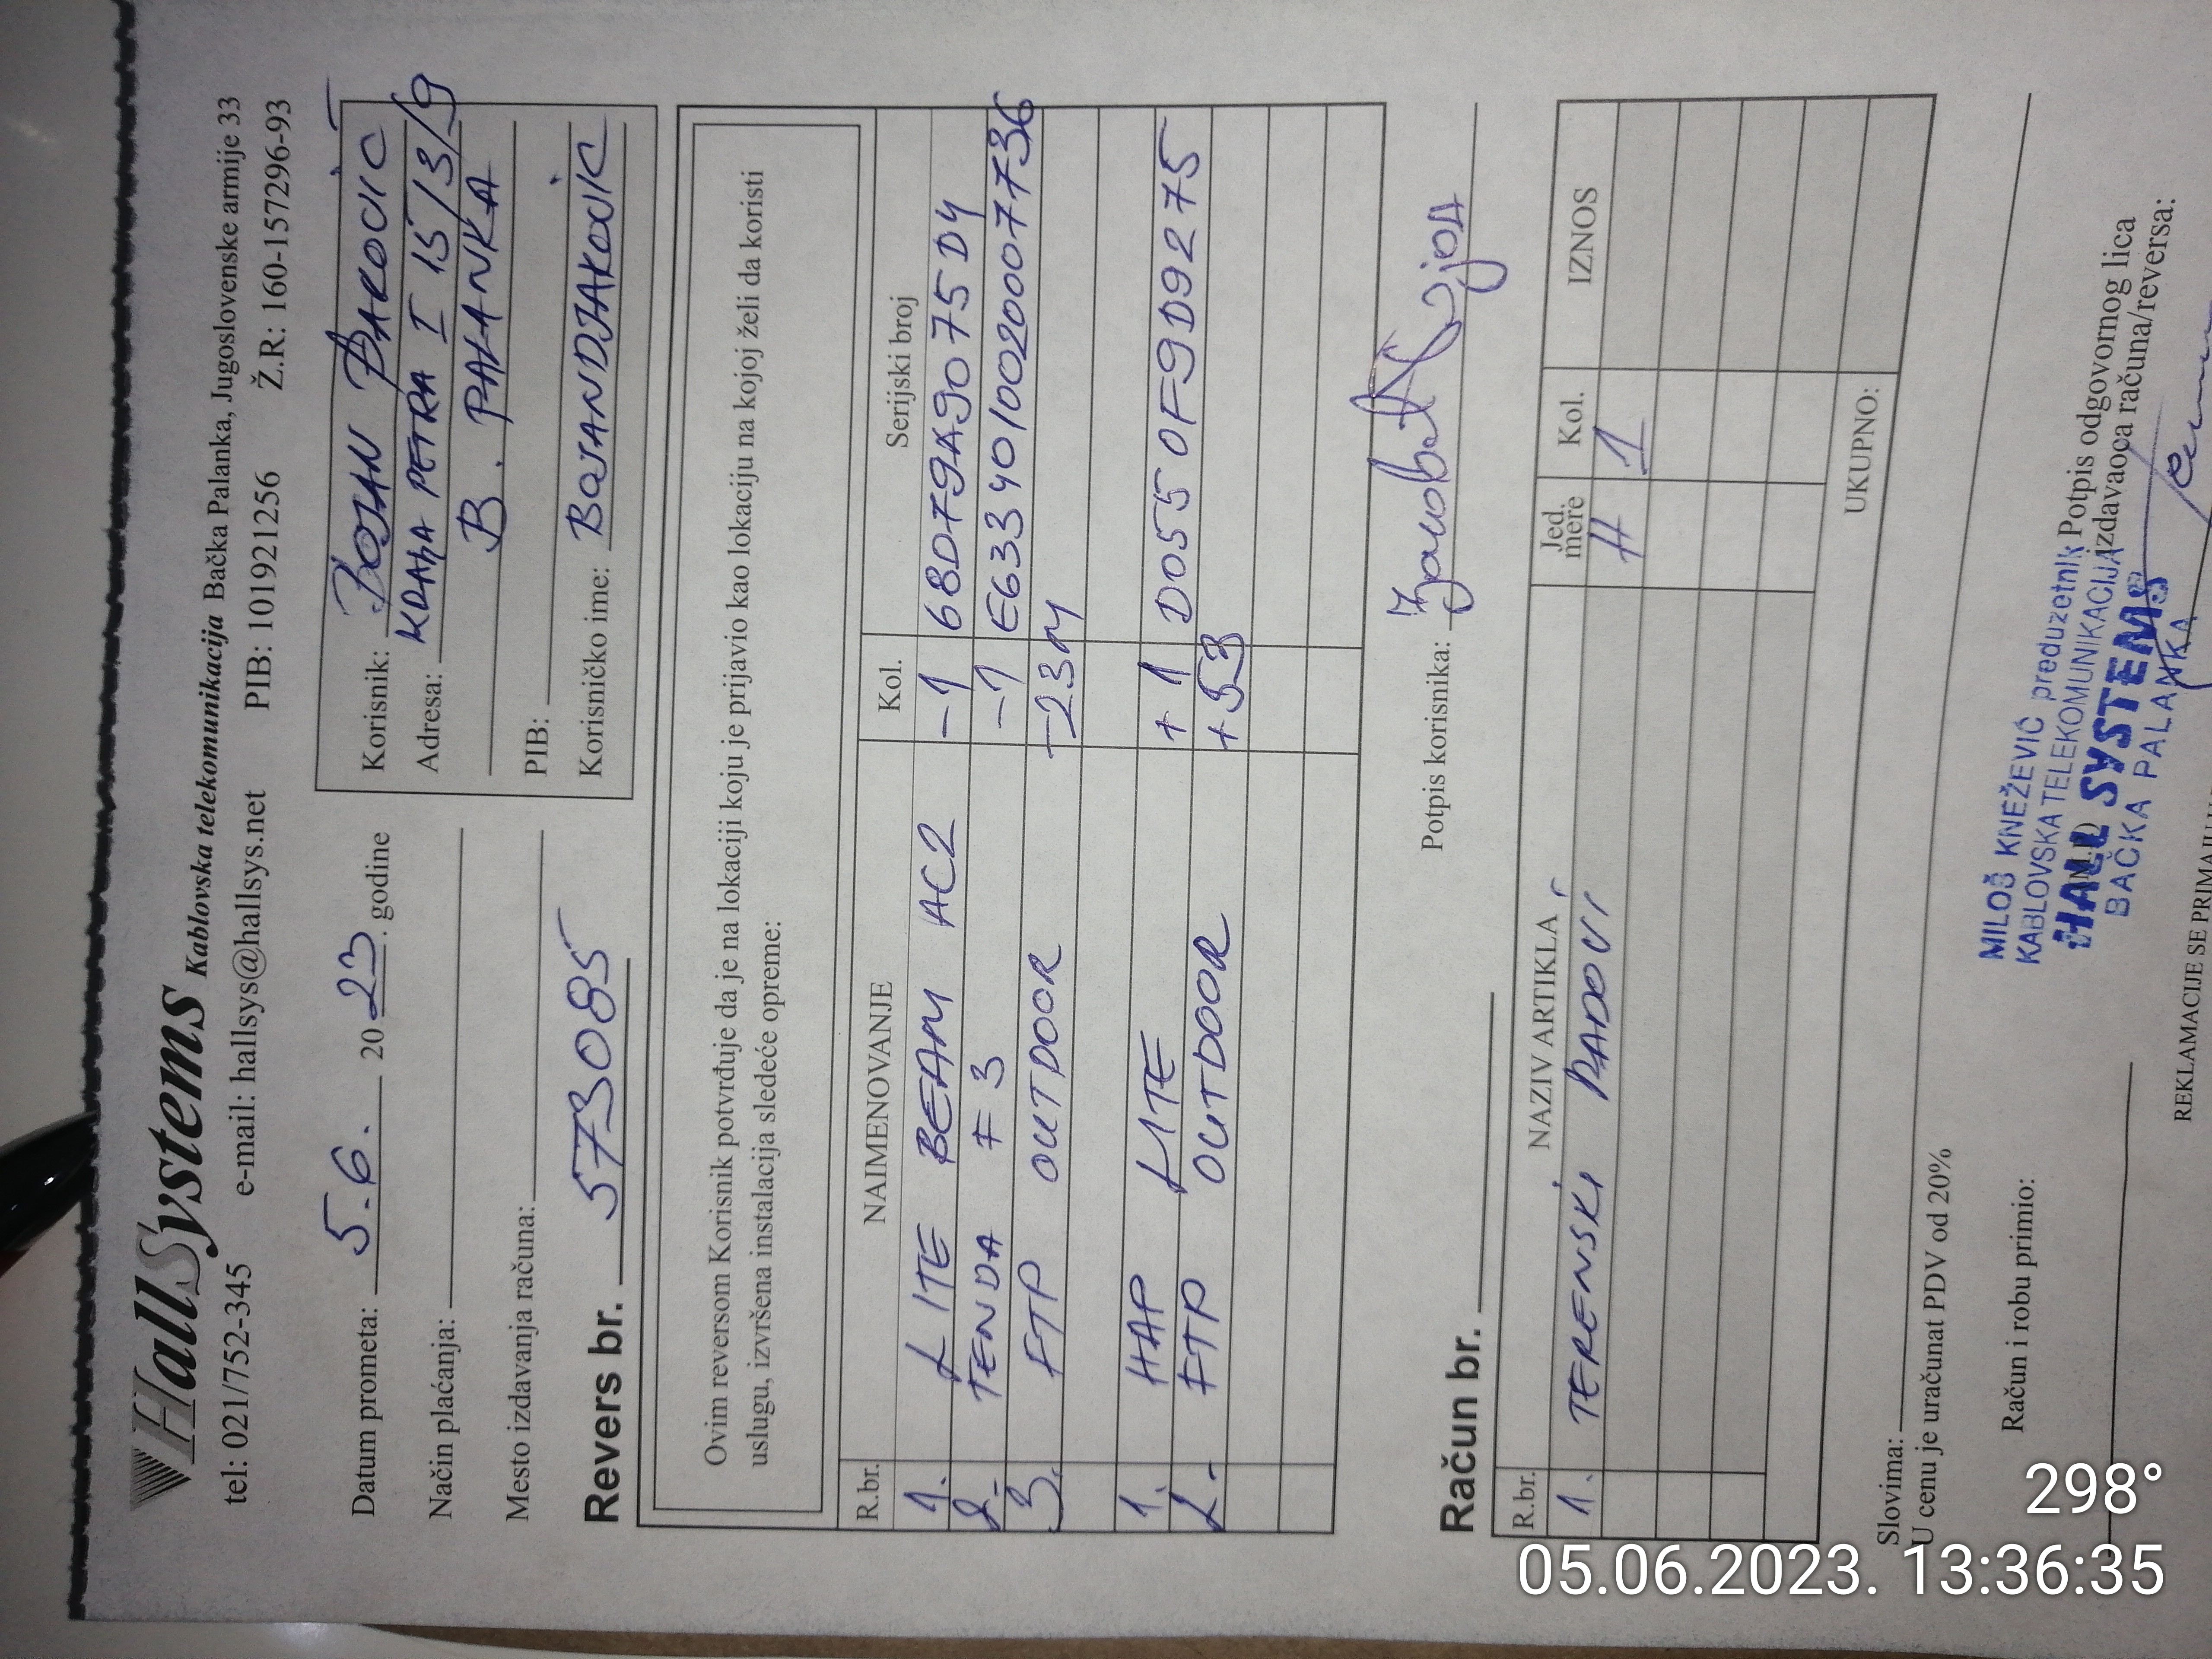 HallSystems Kablovska telekomunikacija Bačka Palanka, Jugoslovenske armije 33
tel: 021/752-345 e-mail: hallsys@hallsys.net PIB: 101921256 Ž.R: 160-157296-93
Datum prometa: 5.6. 2023. godine
Način plaćanja:
Mesto izdavanja računa:
Revers br. 573085
Korisnik: BOJAN ĐAKOVIĆ
Adresa: KRALJA PETRA I 15/3/9
B. PALANKA
PIB:
Korisničko ime: BOJANDJAKOVIC
Ovim reversom Korisnik potvrđuje da je na lokaciji koju je prijavio kao lokaciju na kojoj želi da koristi
uslugu, izvršena instalacija sledeće opreme:
R.br. NAIMENOVANJE Kol. Serijski broj
1. LITE BEAM AC2 -1 68D79A9075D4
2. TENDA F3 -1 E6334010020007736
3. FTP OUTDOOR -23M
1. HAP LITE +1 D0550F9D9275
2. FTP OUTDOOR +53
Potpis korisnika:
Račun br.
R.br. NAZIV ARTIKLA Jed. mere Kol. IZNOS
1. TERENSKI RADOVI H 1
UKUPNO:
Slovima:
U cenu je uračunat PDV od 20%
Račun i robu primio:
MILOŠ KNEŽEVIĆ preduzetnik
KABLOVSKA TELEKOMUNIKACIJA
HALL SYSTEMS
BAČKA PALANKA
Potpis odgovornog lica
izdavaoca računa/reversa:
REKLAMACIJE SE PRIMAJU
298°
05.06.2023. 13:36:35